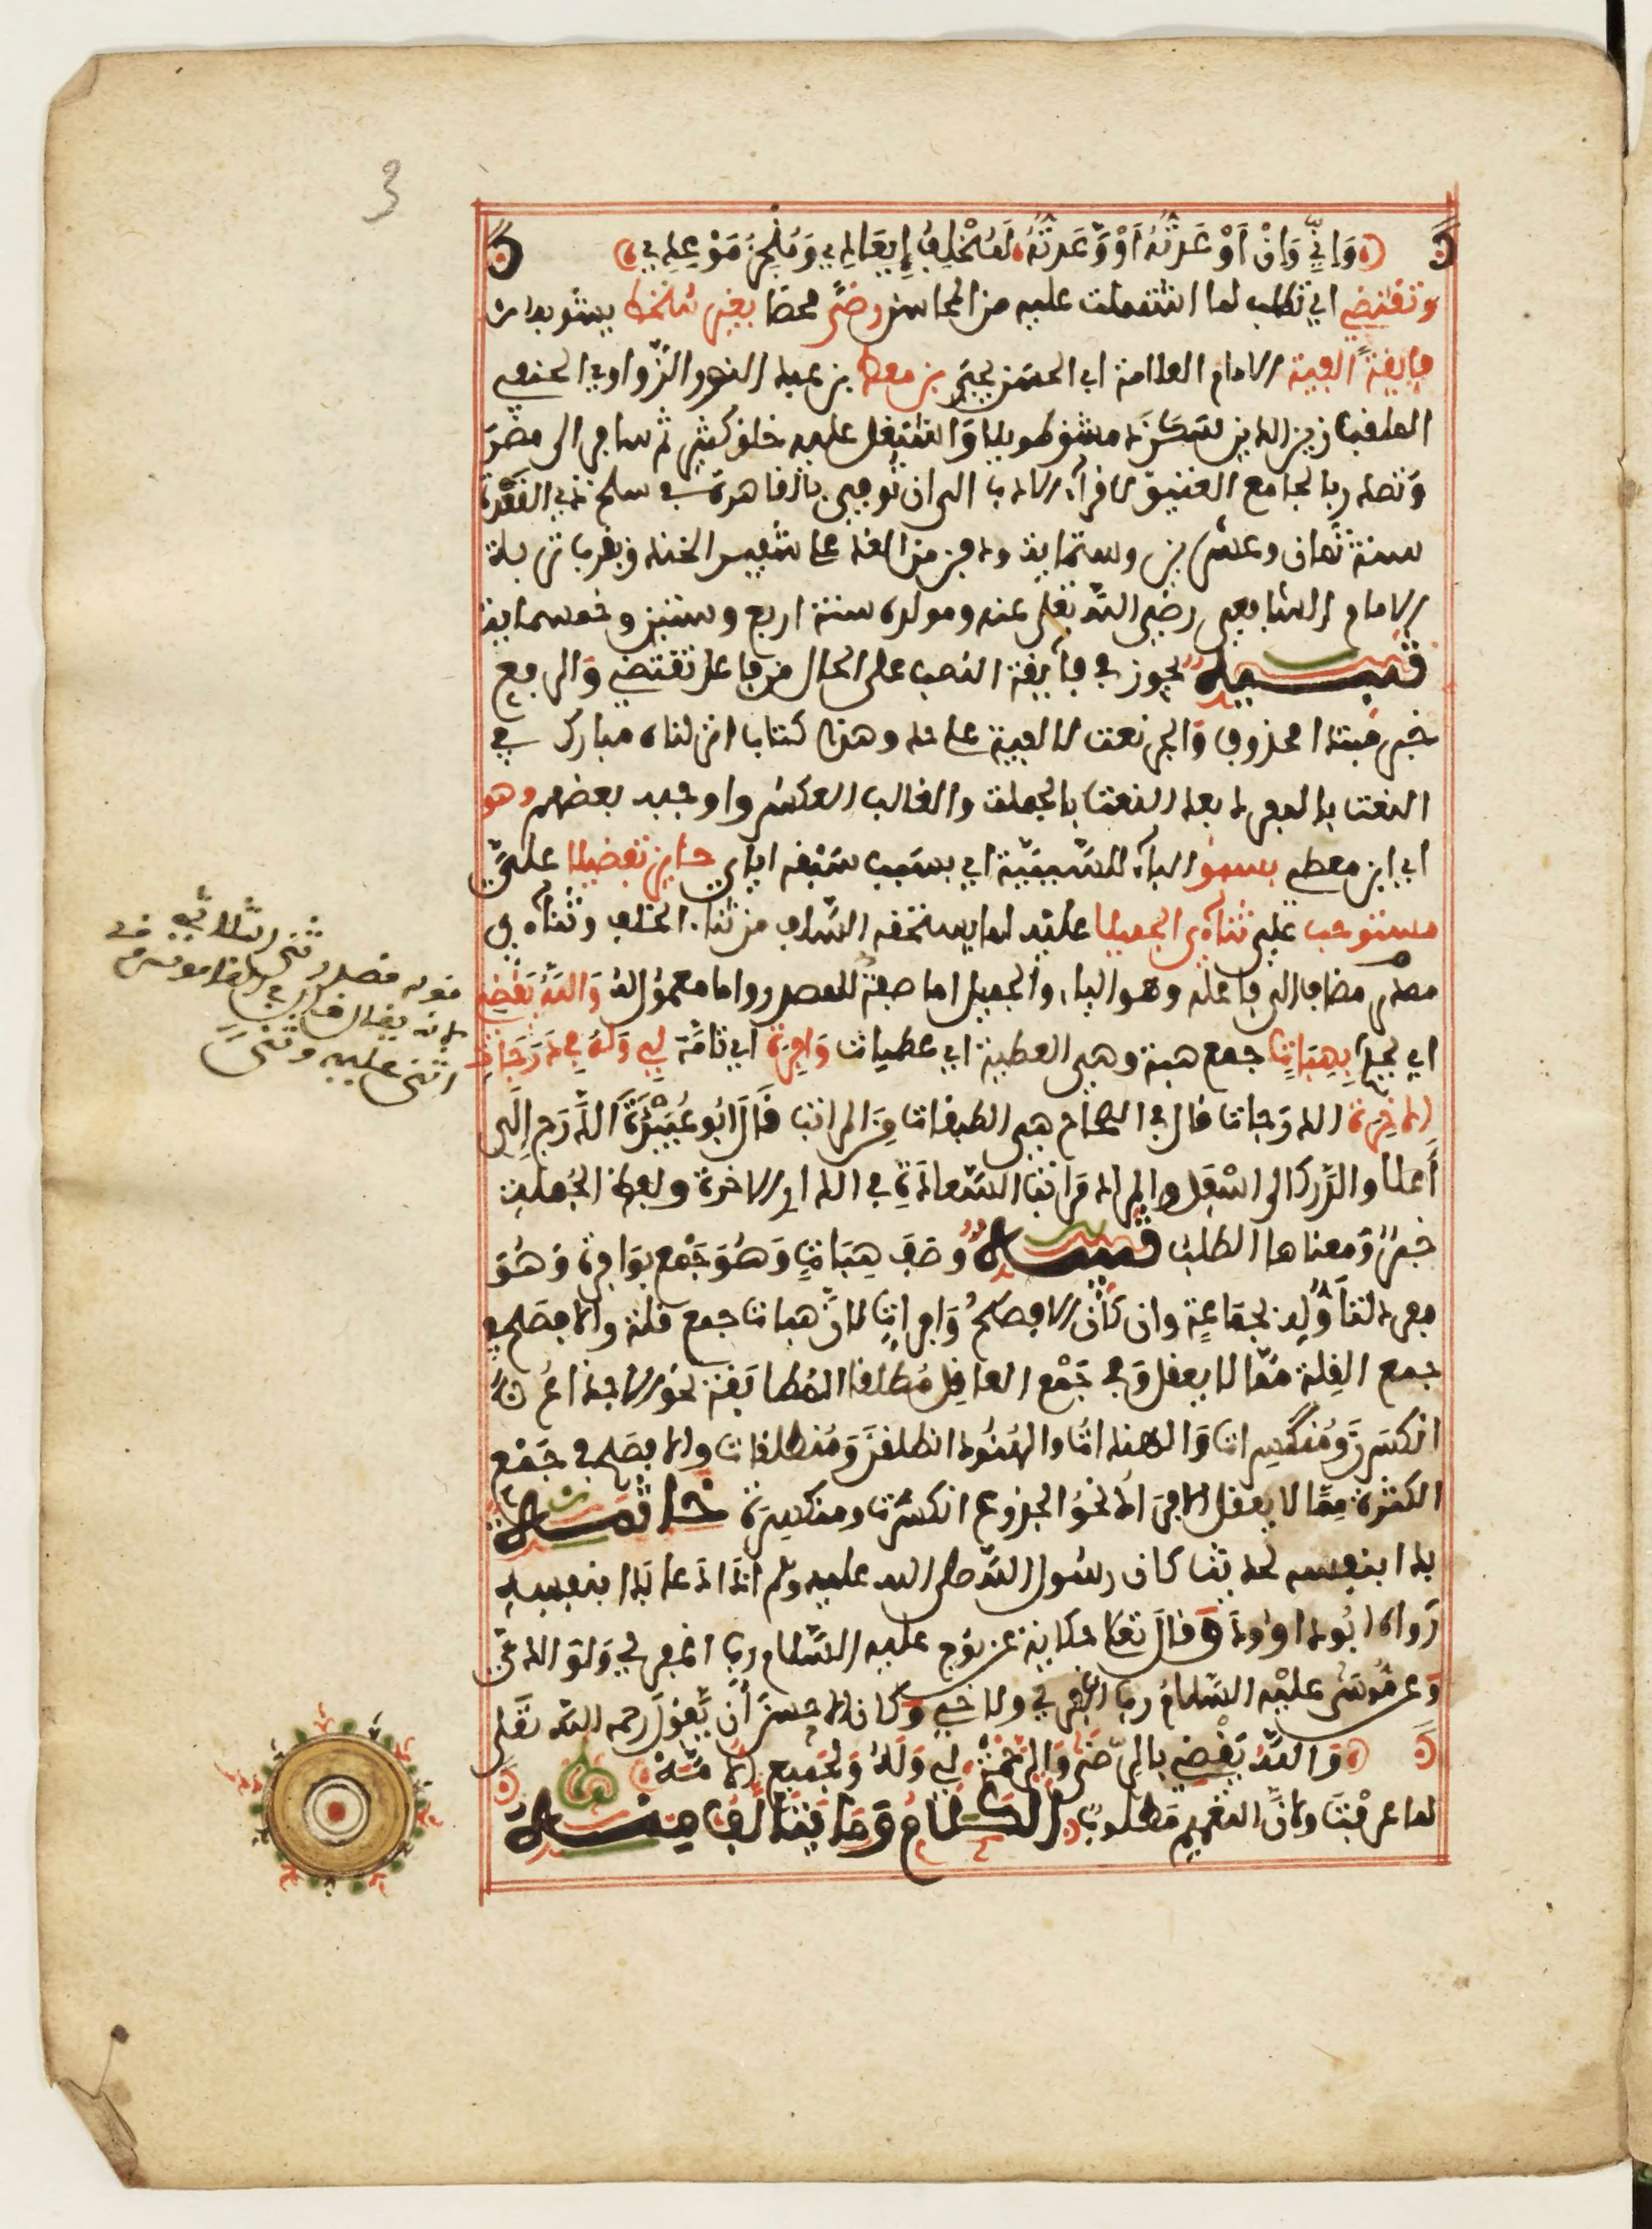 3
وَاِنِّي وَاِنْ اَوْعَدتُهُ اَوْ وَعَدتُهُ لَمُخْلِفُ اِيعَادِي وَمُنْجِزُ مَوْعِدِي
وتقتضي اي تطلب لما اشتملت عليه من المحاسن رضًى محضا بغير سخط يشوبه
فايقة ألفية الامام العلامة ابي الحسن يحيى بن معط بن عبد النور الزواوي الحنفي
الملقب زين الدين سكن دمشق طويلا واشتغل عليه خلق كثير ثم سافر الى مصر
وتصدر بالجامع العتيق لاقرآء الادب الى ان توفي بالقاهرة في سلخ ذي القعدة
سنة ثمان وعشرين وستماية ودفن من الغد على شفير الخندق وبقرب تربة
الامام الشافعي رضي الله تعلى عنه ومولده سنة اربع وستين وخمسماية
تنبيه يجوز في فآيقة النصب على الحال من فاعل تقتضي والرفع
خبر مبتدا محذوف والجر نعت لالفية على حد وهذا كتاب انزلناه مبارك في
النعت بالمفرد بعد النعت بالجملة والغالب العكس واوجبه بعضهم وهو
اي ابن معطي بسبق البآء للسببية اي بسبب سبقه اياي حايز تفضيلا عليَّ
مستوجب علي ثنآءي الجميلا عليه لما يستحقه السلف من ثنا الخلف وثنآءي
مصدر مضاف الى فاعله وهو اليا والجميل اما صفة للمصدر واما معمول له وَاللَّهُ يَقْضِي
اي يحكم بِهِبَاتٍ جمع هبة وهي العطية اي عطيات وَافِرَة اي تامّة لِي وَلَهُ فِي دَرَجَاتِ
الاخِرَة الدرجات قال في الصحاح هي الطبقات من المراتب قال ابو عبيدة الدرج الى
أعلا والدرك الى اسفل والمراد مراتب السعادة في الدار الاخرة ولفظ الجملة
خبر ومعناها الطلب تنبيه وصف هِبَاتٍ وَهُوَ جَمْع بوَافِرة وَهُوَ
مفرد لتأوله بجماعة وان كان الافصح وافرات لان هبات جمع قلة والافصح في
جمع القلة مما لا يعقل وفي جَمْع العاقل مطلقا المطابقة نحو الاجذاع
انكسرن ومنكسرات والهندات والهنود انطلقن ومنطلقات والافصح في جَمْع
الكثرة مما لا يعقل الافراد نحو الجذوع انكسرت ومنكسرة خاتمة
بدا بنفسه لحديث كان رسول الله صلى الله عليه وسلم اذا دعا بدا بنفسه
رواه ابو داوود وقال تعلى حكاية عن نوح عليه السلام رب اغفر لي ولوالدي
وعن موسى عليه السلام رب اغفر لي ولاخي وكان الاحسن أن يقول رحمه الله تعلى
وَاللَّهُ يَقْضِي بالرِّضَى وَالرَّحْمَةْ لِي وَلَهُ وَلجَمِيعِ الاُمَّةْ
لما عرفت ولان التعميم مطلوب الكَلامُ وَمَا يَتَألَّفُ مِنْهُ
قوله مصدر ثنى الثلاثي
لانه يقال في القاموس
اثنى عليه وثنى